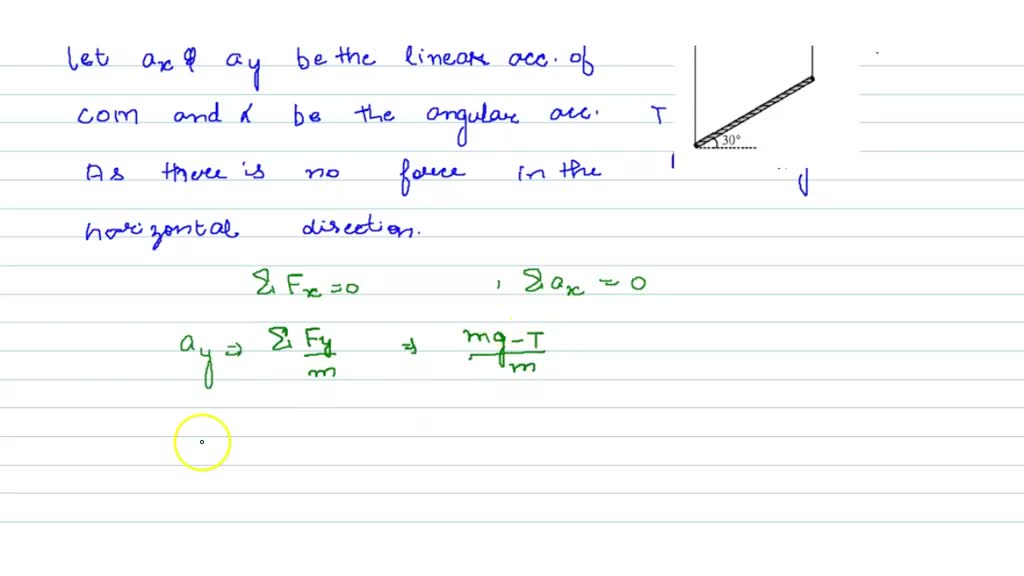 Let ax & ay be the linear acc. of
com and α be the angular acc. T
30°
As there is no force in the
y
horizontal direction.
Σ Fx = 0 , Σ ax = 0
ay ⇒ Σ Fy/m ⇒ mg-T/m